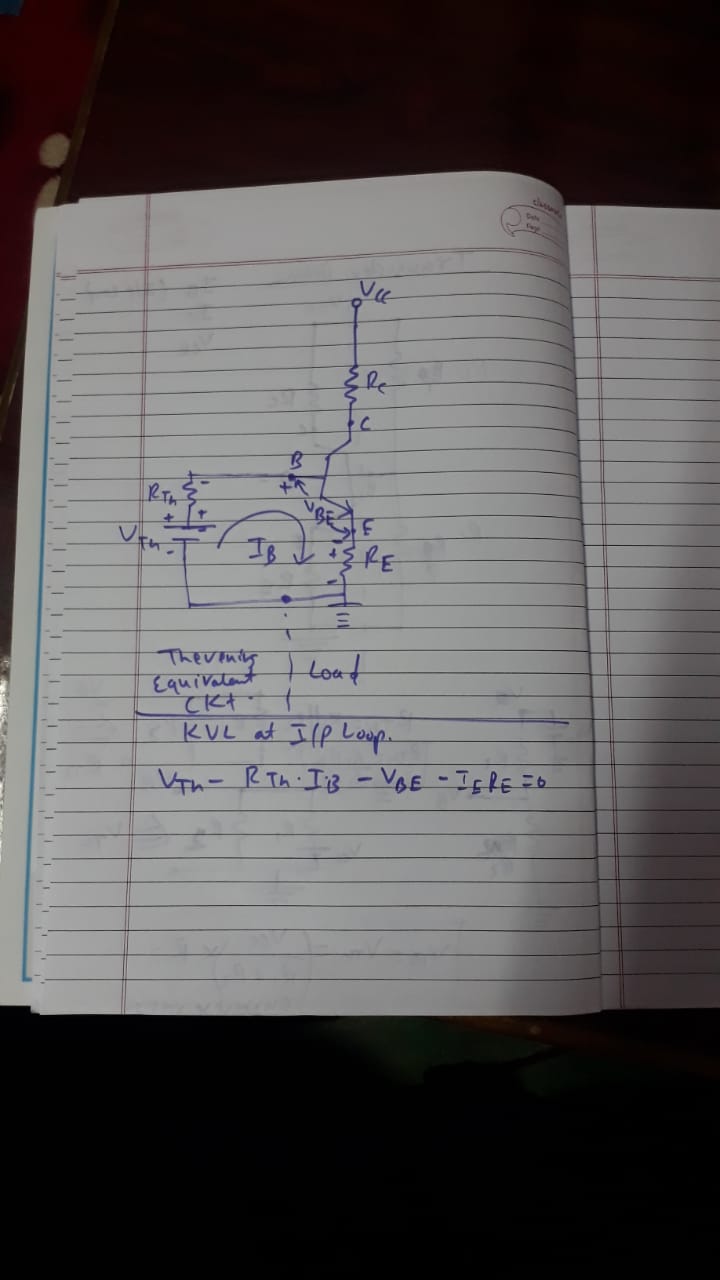 classmate
Date
Page
VCC
RC
C
B
RTh
-
+
+ +
VBE
E
VTh
-
-
IB
+
-
RE
-
Thevenins
Equivalent
CKt.
Load
KVL at I/P Loop.
VTh - RTh · IB - VBE - IERE = 0